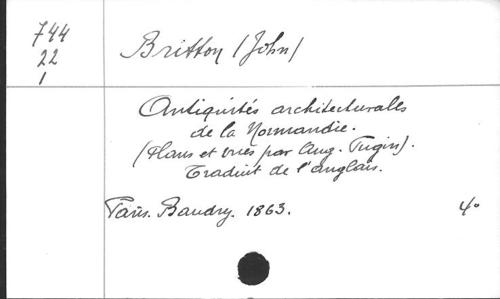 744
22
1
Britton (John)
Antiquités architecturales
de la Normandie.
(Plans et vues par Aug. Pugin).
Traduit de l'anglais.
Paris. Baudry. 1863.
4°